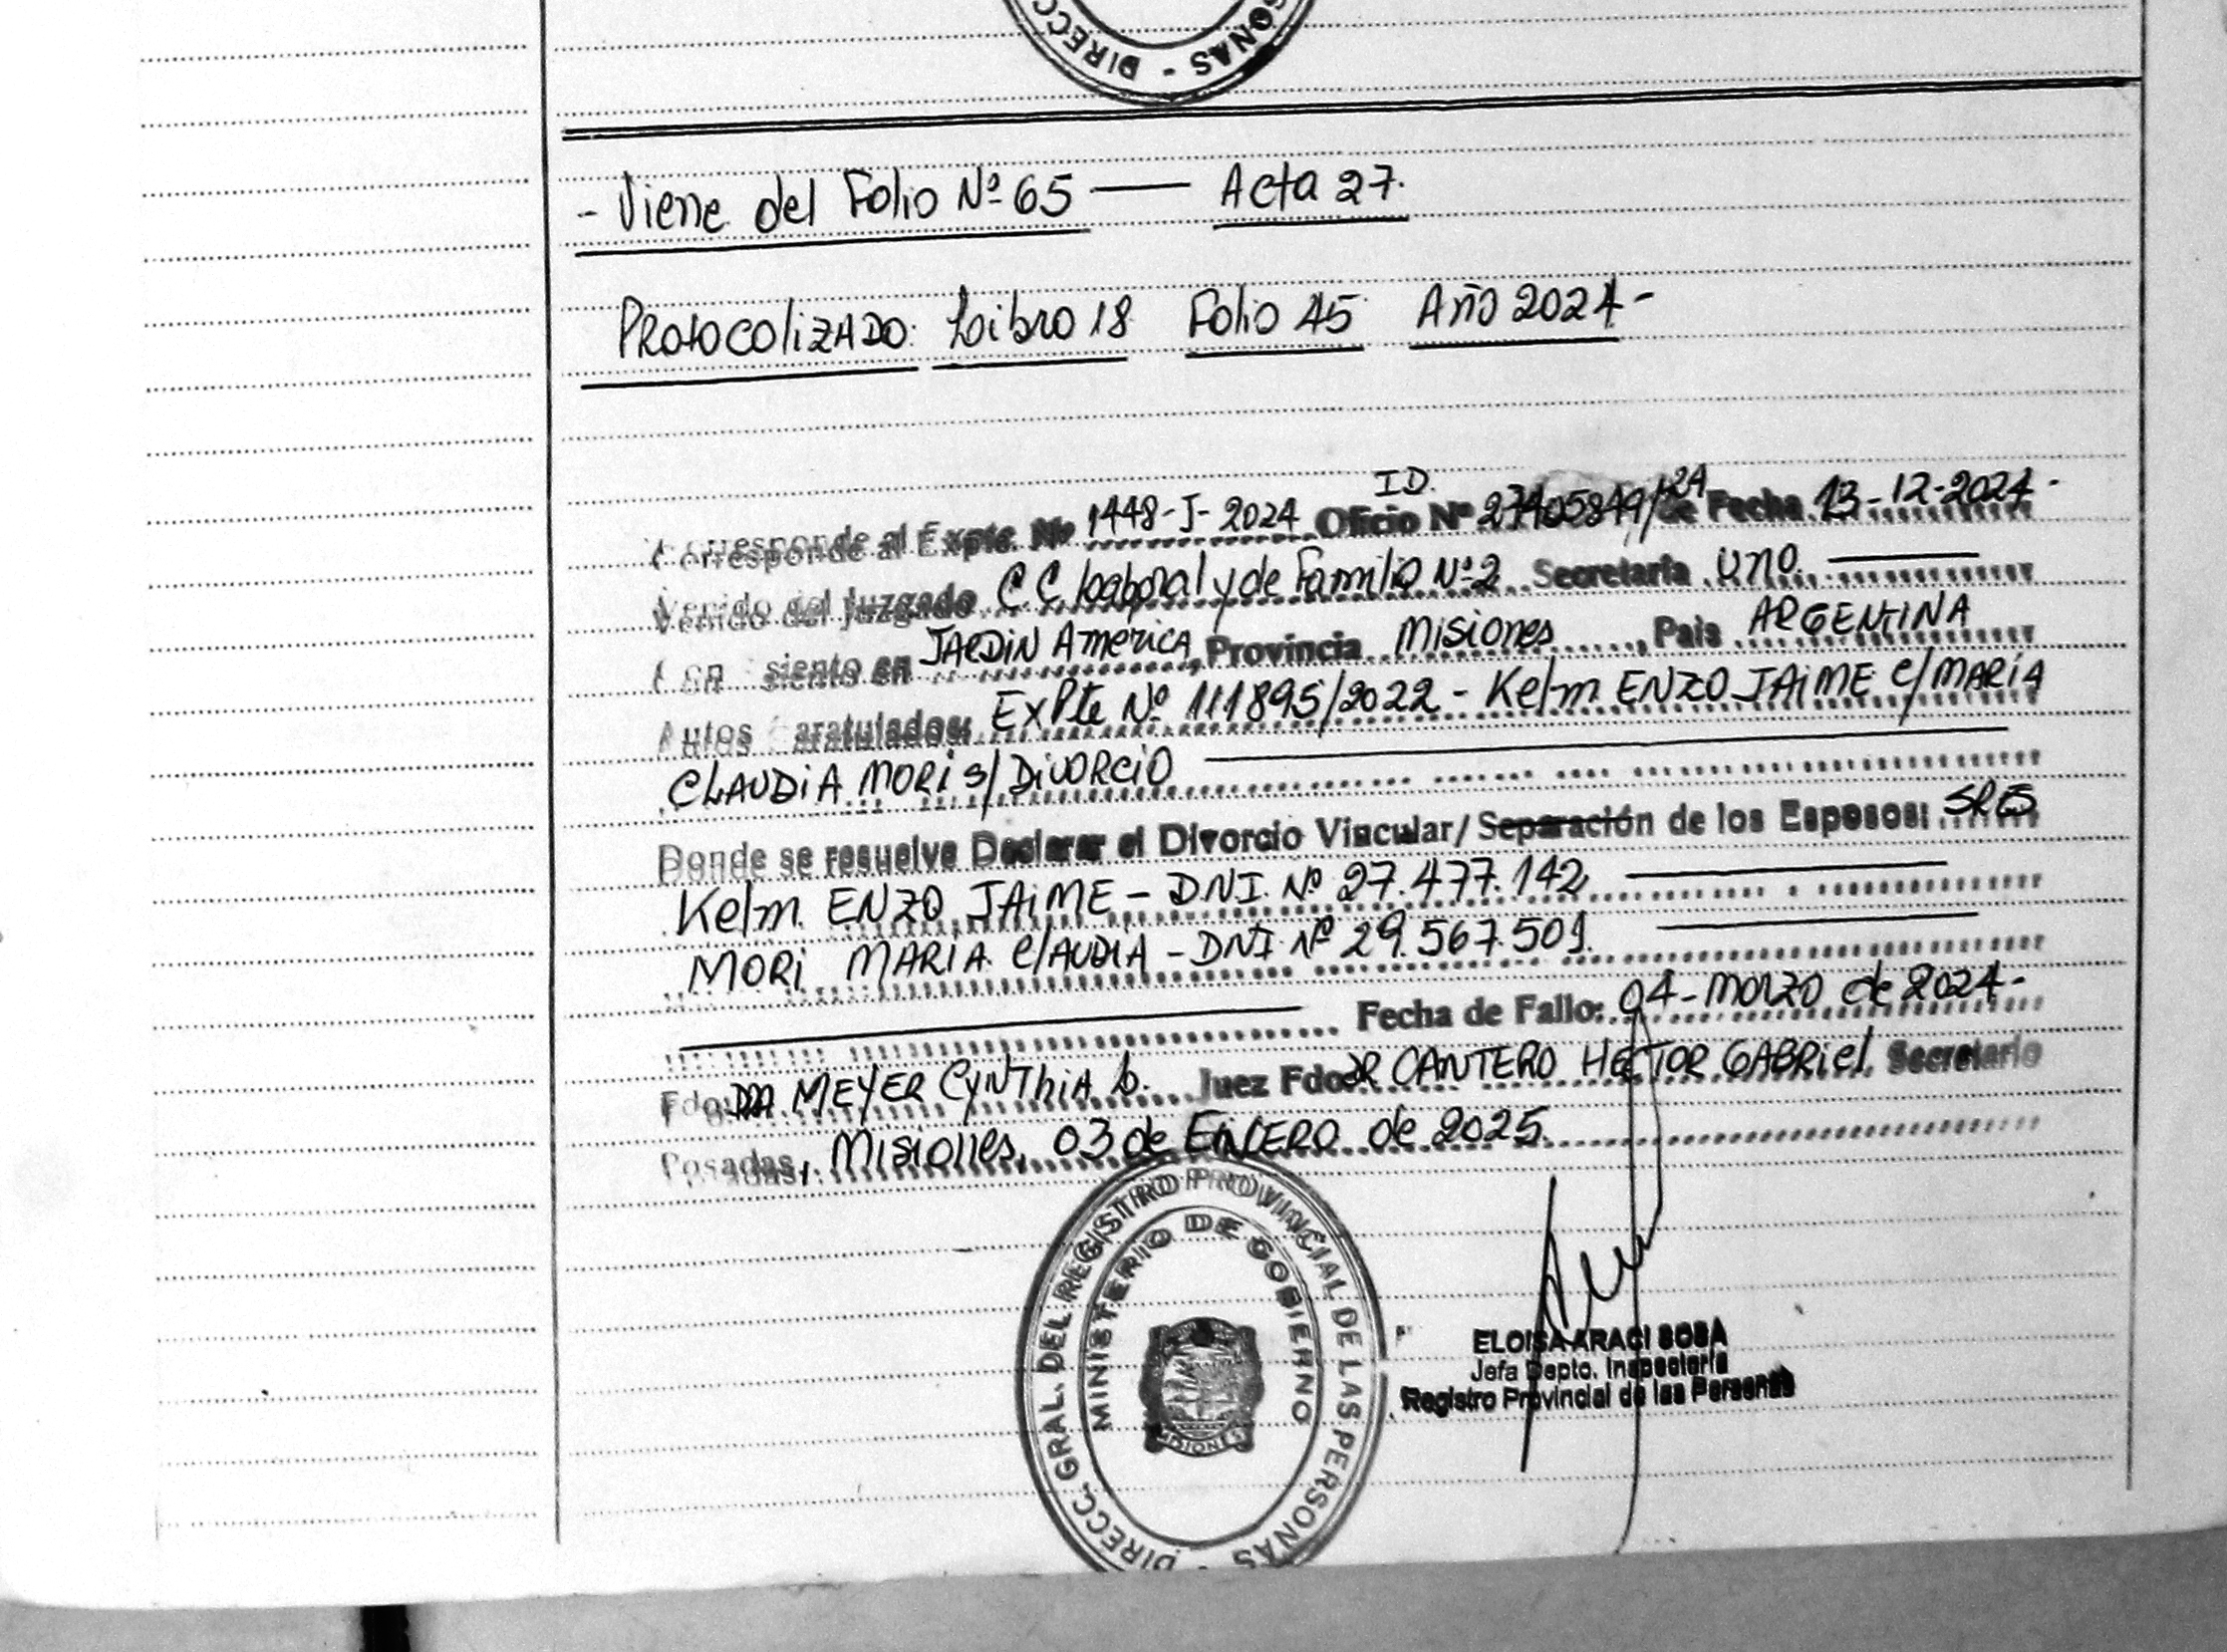 DIRECC
SONAS -
- Viene del Folio Nº 65 — Acta 27.
Protocolizado: Libro 18 Folio 45 Año 2024 -
ID.
Corresponde al Expte. Nº 1448-J-2024 Oficio Nº /24 de Fecha 13-12-2024 -
Venido del Juzgado C C Laboral y de Familia Nº 2 Secretaría Uno
Con asiento en JARDIN America, Provincia Misiones, País ARGENTINA
Autos Caratulados: ExPte Nº 111895/2022 - Kelm ENZO JAiME C/ MARIA
CLAUDiA MORi S/ DiVORCiO
Donde se resuelve Declarar el Divorcio Vincular/Separación de los Esposos: SRES
Kelm ENZO JAiME - DNI. Nº 27.477.142
MORi MARIA ClAUDiA - DNI Nº 29.567.501.
Fecha de Fallo: 04 - Marzo de 2024 -
Fdo: DRA MEYER CyNThiA L. Juez Fdo: DR CANTERO HECTOR GABRiel Secretario
Posadas, Misiones, 03 de ENERO de 2025
DIRECC. GRAL. DEL REGISTRO PROVINCIAL DE LAS PERSONAS -
MINISTERIO DE GOBIERNO
MISIONES
ELOISA ARACI SOSA
Jefa Depto. Inspectoría
Registro Provincial de las Personas